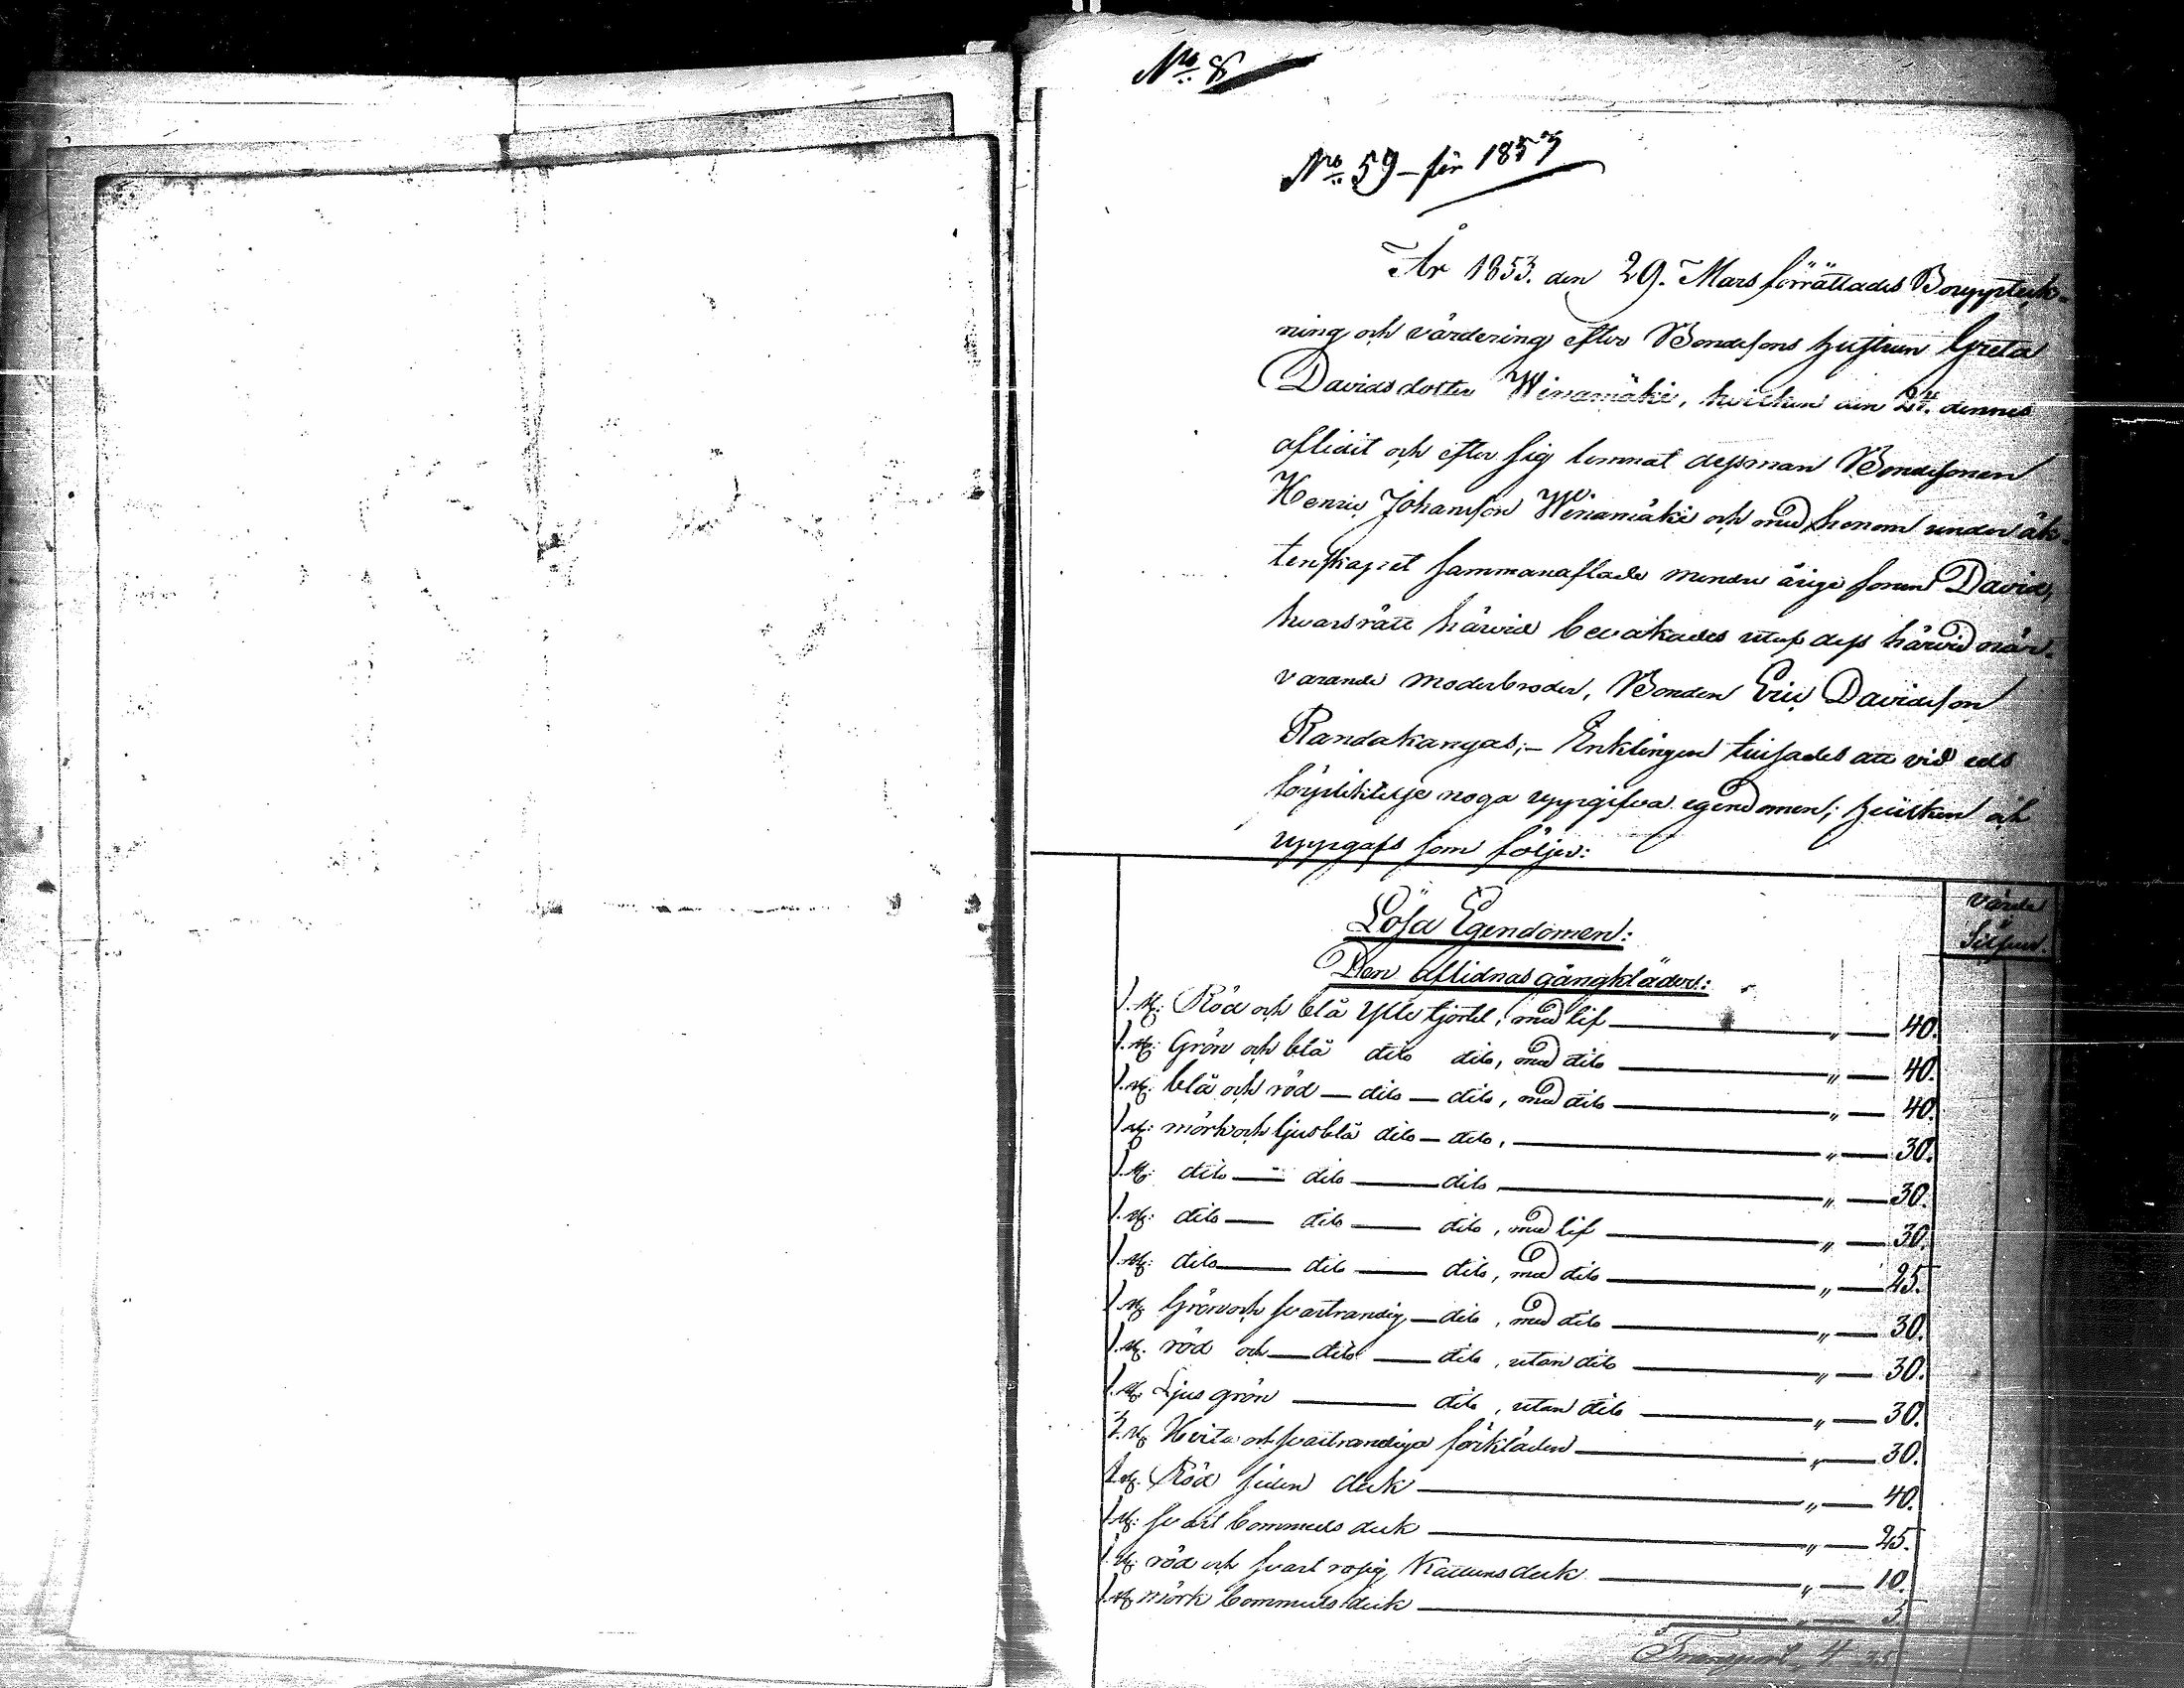 No 8
No 59 – för 1853
År 1853. den 29. Mars förrättades Bouppteck-
ning och värdering efter Bondesons hustrun Greta
Davidsdotter Wirramäki, hvilken den 24. dennes
aflidit och efter sig lemnat dess man Bondesonen
Henric Johansson och med honom under äk-
tenskapet sammanaflade mindre årige sonen David,
hvars rätt härvid bevakades utaf dess härvid när-
varande moderbroder, Bonden Eric Davidsson
Randakangas; – Enklingen att vid eds
förpliktelse noga uppgifva egendomen; hvilken och
uppgafs som följer:
Lösa Egendomen:
Den aflidnas gångkläder:
värde
Silfver.
1. st: Röd och blå Ylle kjortel, med lif — " — 40.
1. st: Grön och blå dito dito, med dito — " — 40.
1. st: blå och röd — dito — dito, med dito — " — 40.
1 st: mörk och ljusblå dito — dito, — " — 30.
1. st: dito — dito — dito — " — 30.
1. st: dito — dito — dito, med lif — " — 30.
1. st: dito — dito — dito, med dito — " — 25.
1. st Grön och svartrandig — dito, med dito — " — 30.
1. st. röd och — dito — dito, utan dito — " — 30.
1. st. Ljus grön — dito, utan dito — " — 30.
3. st Hvita och svartrandiga förkläden — " — 30.
1 st. Röd siden duk — " — 40.
1 st: svart bommuls duk — " — 25.
1. st: röd och svart rosig Kattuns duk — " — 10.
1. st mörk bommuls duk — " — 5.
Transport, 4 35